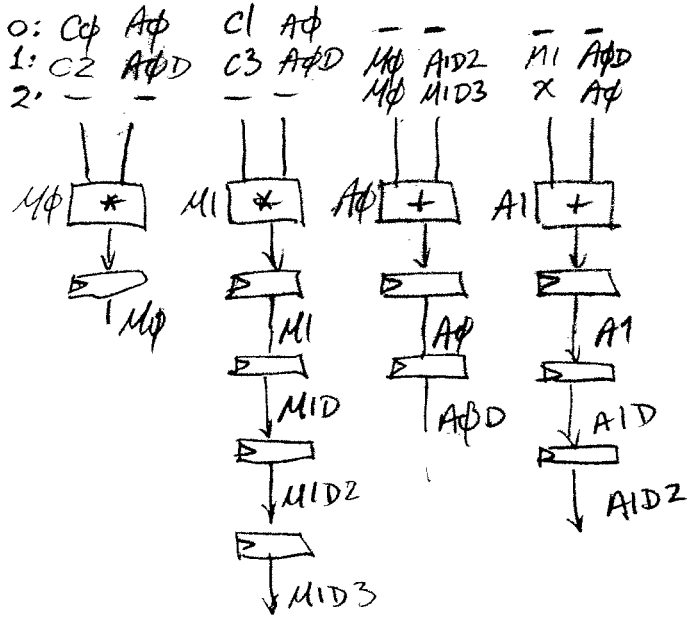 0: Cϕ Aϕ C1 Aϕ — — — —
1: C2 AϕD C3 AϕD Mϕ A1D2 M1 AϕD
2: — — — — Mϕ M1D3 X Aϕ
Mϕ * M1 * Aϕ + A1 +
Mϕ M1 Aϕ A1
M1D AϕD A1D
M1D2 A1D2
M1D3